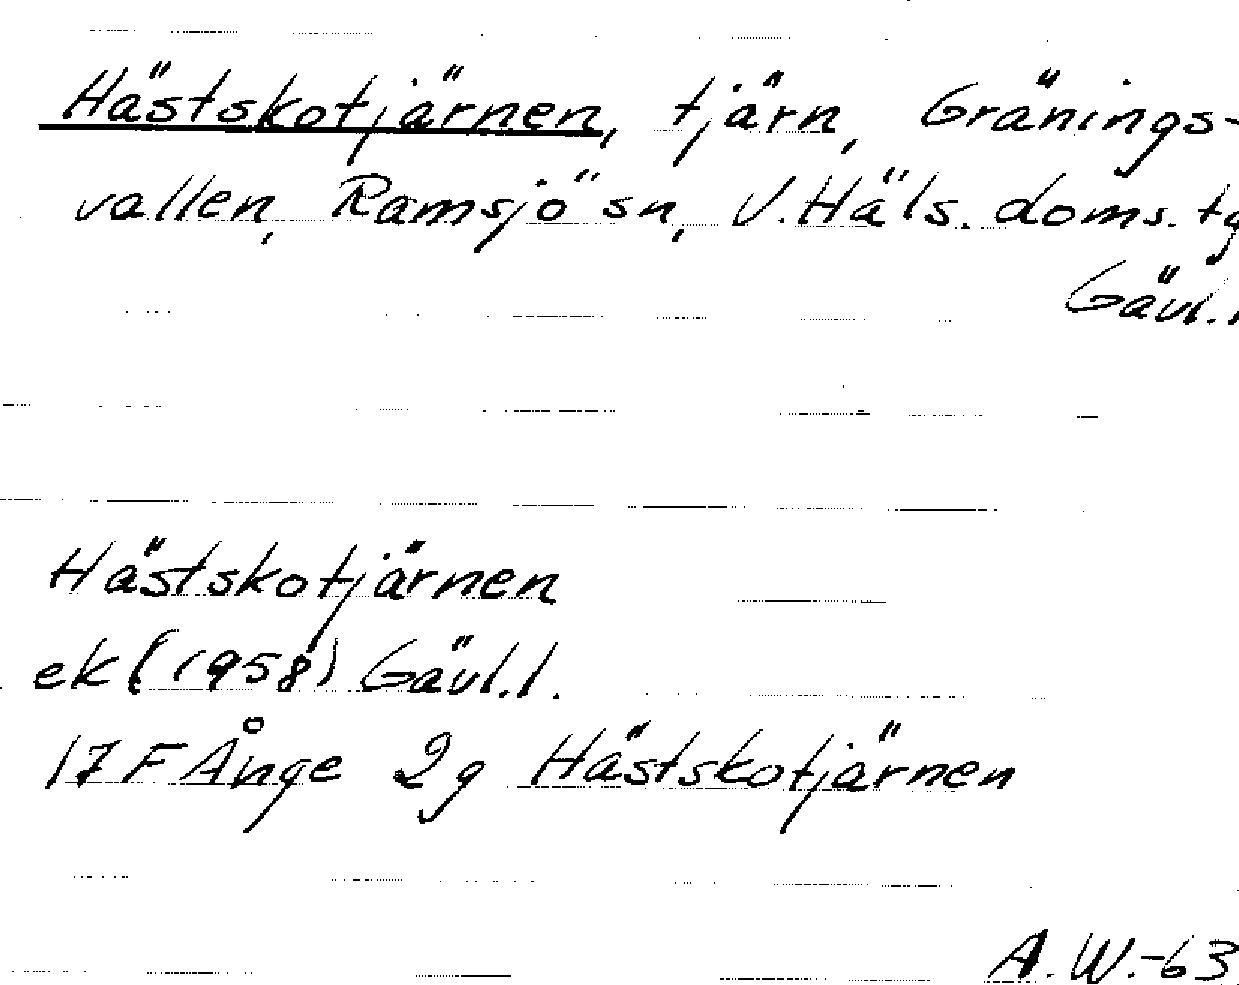 Hästskotjärnen, tjärn, Gränings-
vallen, Ramsjö sn, V. Häls. doms. tg
Gävl. l
Hästskotjärnen
ek (1958) Gävl. l.
17 F Ånge 2g Hästskotjärnen
A. W. -63